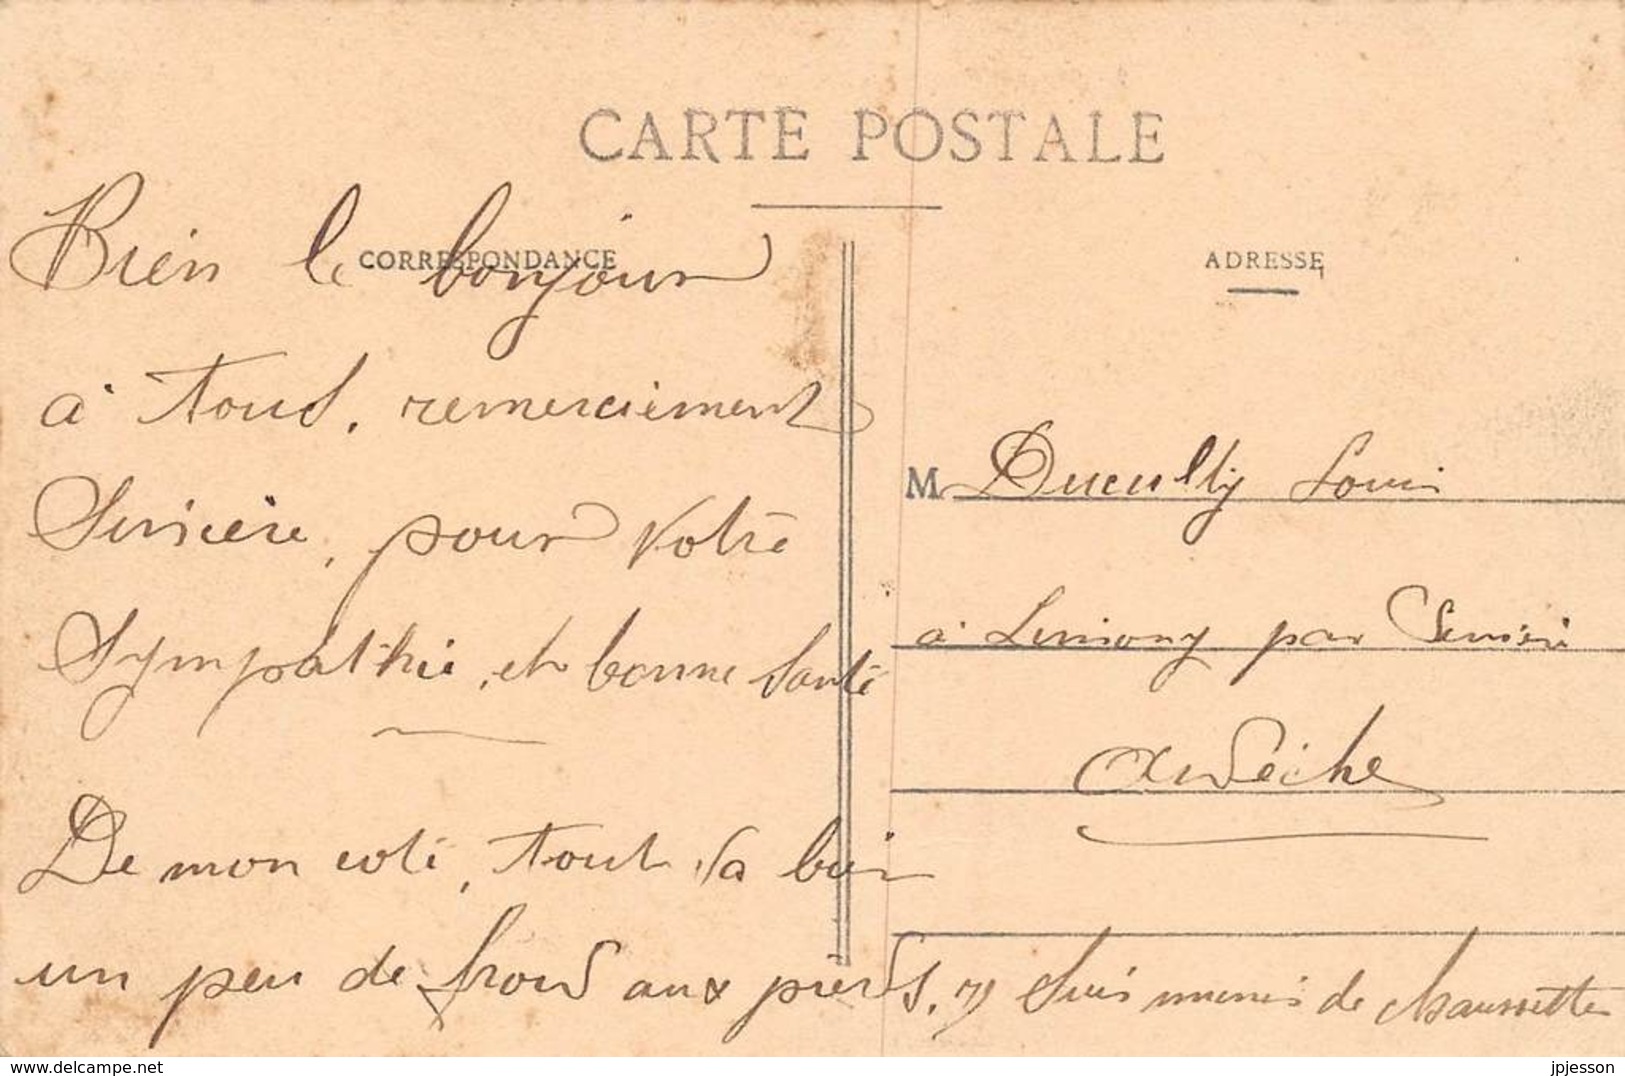 CARTE POSTALE
CORRESPONDANCE
Bien le bonjour
à Tous, remerciement
Sincère, pour Votre
Sympathie, et bonne Santé
De mon coté, tout va bien
un peu de froid aux pieds, Suis munis de chaussettes
ADRESSE
M Ducully Louis
à Limony par Serrières
Ardèche
delcampe.net
jpjesson